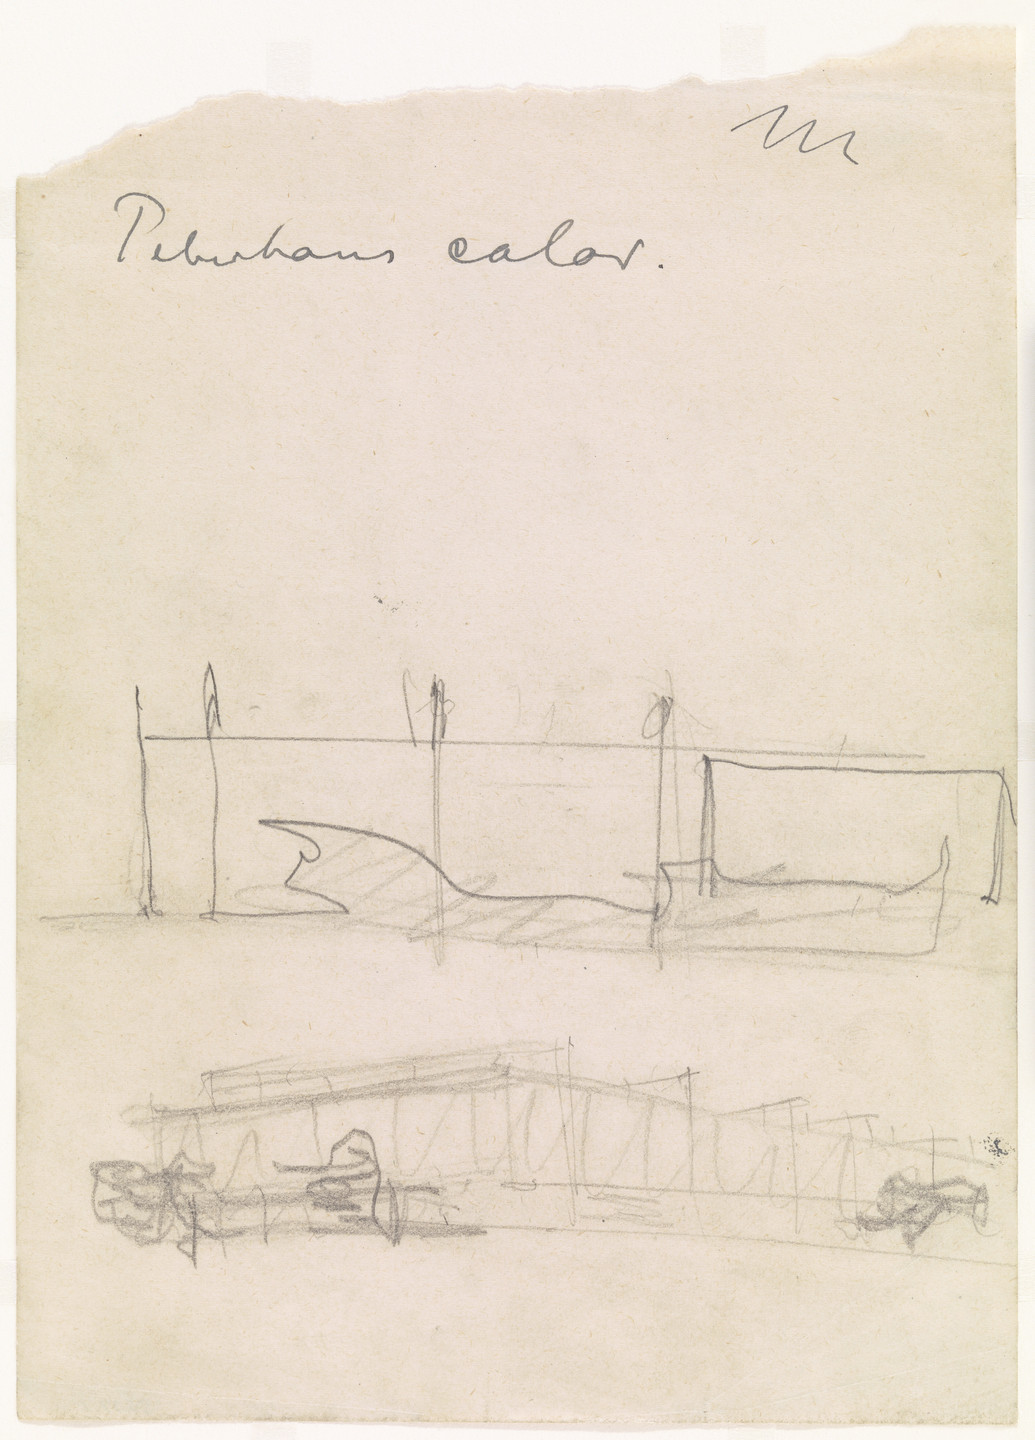 m
Peterhans color.